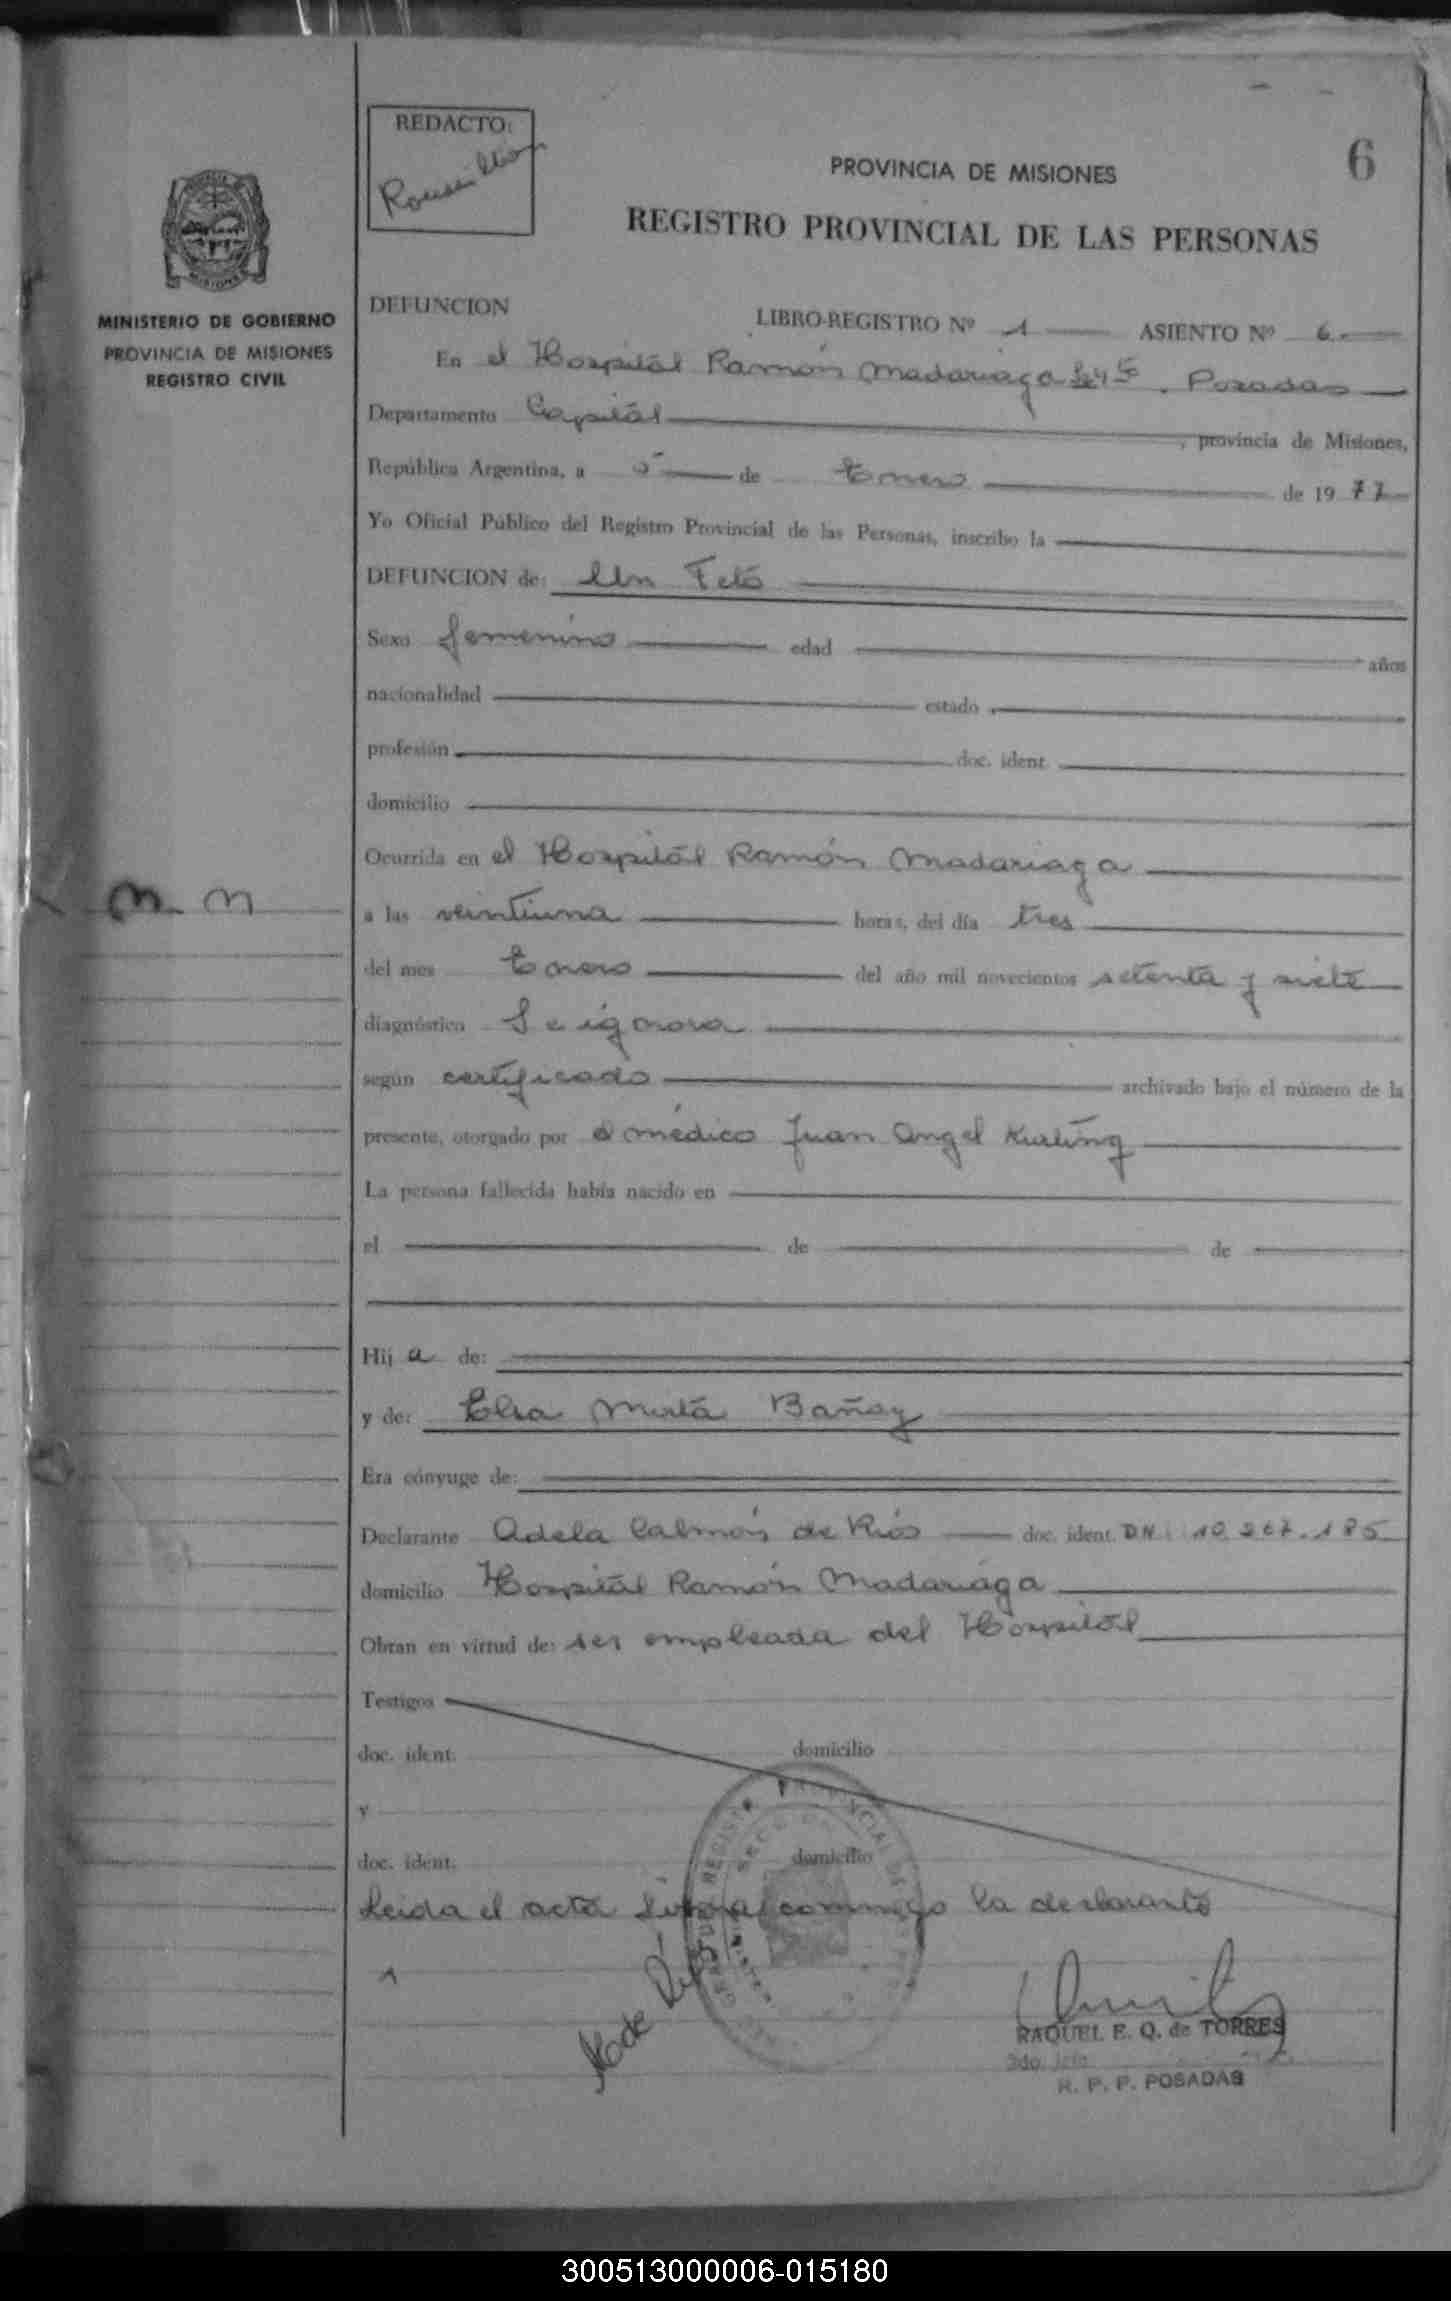 REDACTO:
6
PROVINCIA DE MISIONES
REGISTRO PROVINCIAL DE LAS PERSONAS
MINISTERIO DE GOBIERNO
PROVINCIA DE MISIONES
REGISTRO CIVIL
DEFUNCION
LIBRO-REGISTRO Nº 1 ASIENTO Nº 6
En el Hospital Ramón Madariaga Posadas
Departamento Capital , provincia de Misiones,
República Argentina, a 5 de Enero de 1977
Yo Oficial Público del Registro Provincial de las Personas, inscribo la
DEFUNCION de: Un Feto
Sexo femenino edad años
nacionalidad estado
profesión doc. ident.
domicilio
Ocurrida en el Hospital Ramón Madariaga
N N
a las veintiuna horas, del día tres
del mes Enero del año mil novecientos setenta y siete
diagnóstico Se ignora
según certificado archivado bajo el número de la
presente, otorgado por el médico Juan Angel
La persona fallecida había nacido en
el de de
Hij a de:
y de: Elsa Mirta Bañay
Era cónyuge de:
Declarante Adela Calmón de Ríos doc. ident. DN. 10.267.185
domicilio Hospital Ramón Madariaga
Obran en virtud de: ser empleada del Hospital
Testigos
doc. ident. domicilio
y
doc. ident. domicilio
Leida el acta firma conmigo la declarante
A de Ríos
RAQUEL E. Q. de TORRES
R. P. P. POSADAS
300513000006-015180